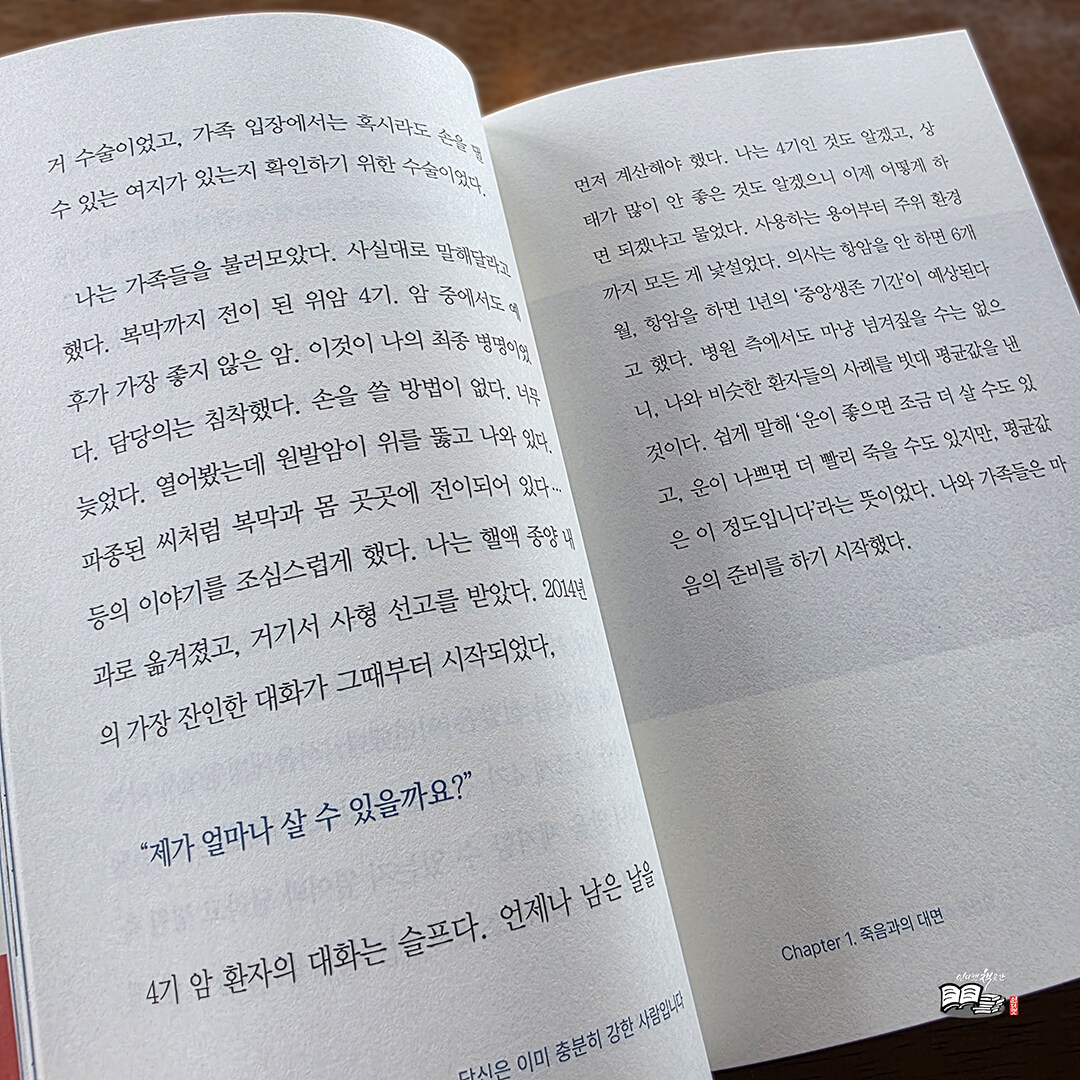 거 수술이었고, 가족 입장에서는 혹시라도 손을 댈
수 있는 여지가 있는지 확인하기 위한 수술이었다.
나는 가족들을 불러모았다. 사실대로 말해달라고
했다. 복막까지 전이 된 위암 4기. 암 중에서도 예
후가 가장 좋지 않은 암. 이것이 나의 최종 병명이었
다. 담당의는 침착했다. 손을 쓸 방법이 없다. 너무
늦었다. 열어봤는데 원발암이 위를 뚫고 나와 있다.
파종된 씨처럼 복막과 몸 곳곳에 전이되어 있다…
등의 이야기를 조심스럽게 했다. 나는 핼액 종양 내
과로 옮겨졌고, 거기서 사형 선고를 받았다. 2014년
의 가장 잔인한 대화가 그때부터 시작되었다,
“제가 얼마나 살 수 있을까요?”
4기 암 환자의 대화는 슬프다. 언제나 남은 날을
당신은 이미 충분히 강한 사람입니다
먼저 계산해야 했다. 나는 4기인 것도 알겠고, 상
태가 많이 안 좋은 것도 알겠으니 이제 어떻게 하
면 되겠냐고 물었다. 사용하는 용어부터 주위 환경
까지 모든 게 낯설었다. 의사는 항암을 안 하면 6개
월, 항암을 하면 1년의 ‘중앙생존 기간’이 예상된다
고 했다. 병원 측에서도 마냥 넘겨짚을 수는 없으
니, 나와 비슷한 환자들의 사례를 빗대 평균값을 낸
것이다. 쉽게 말해 ‘운이 좋으면 조금 더 살 수도 있
고, 운이 나쁘면 더 빨리 죽을 수도 있지만, 평균값
은 이 정도입니다’라는 뜻이었다. 나와 가족들은 마
음의 준비를 하기 시작했다.
Chapter 1. 죽음과의 대면